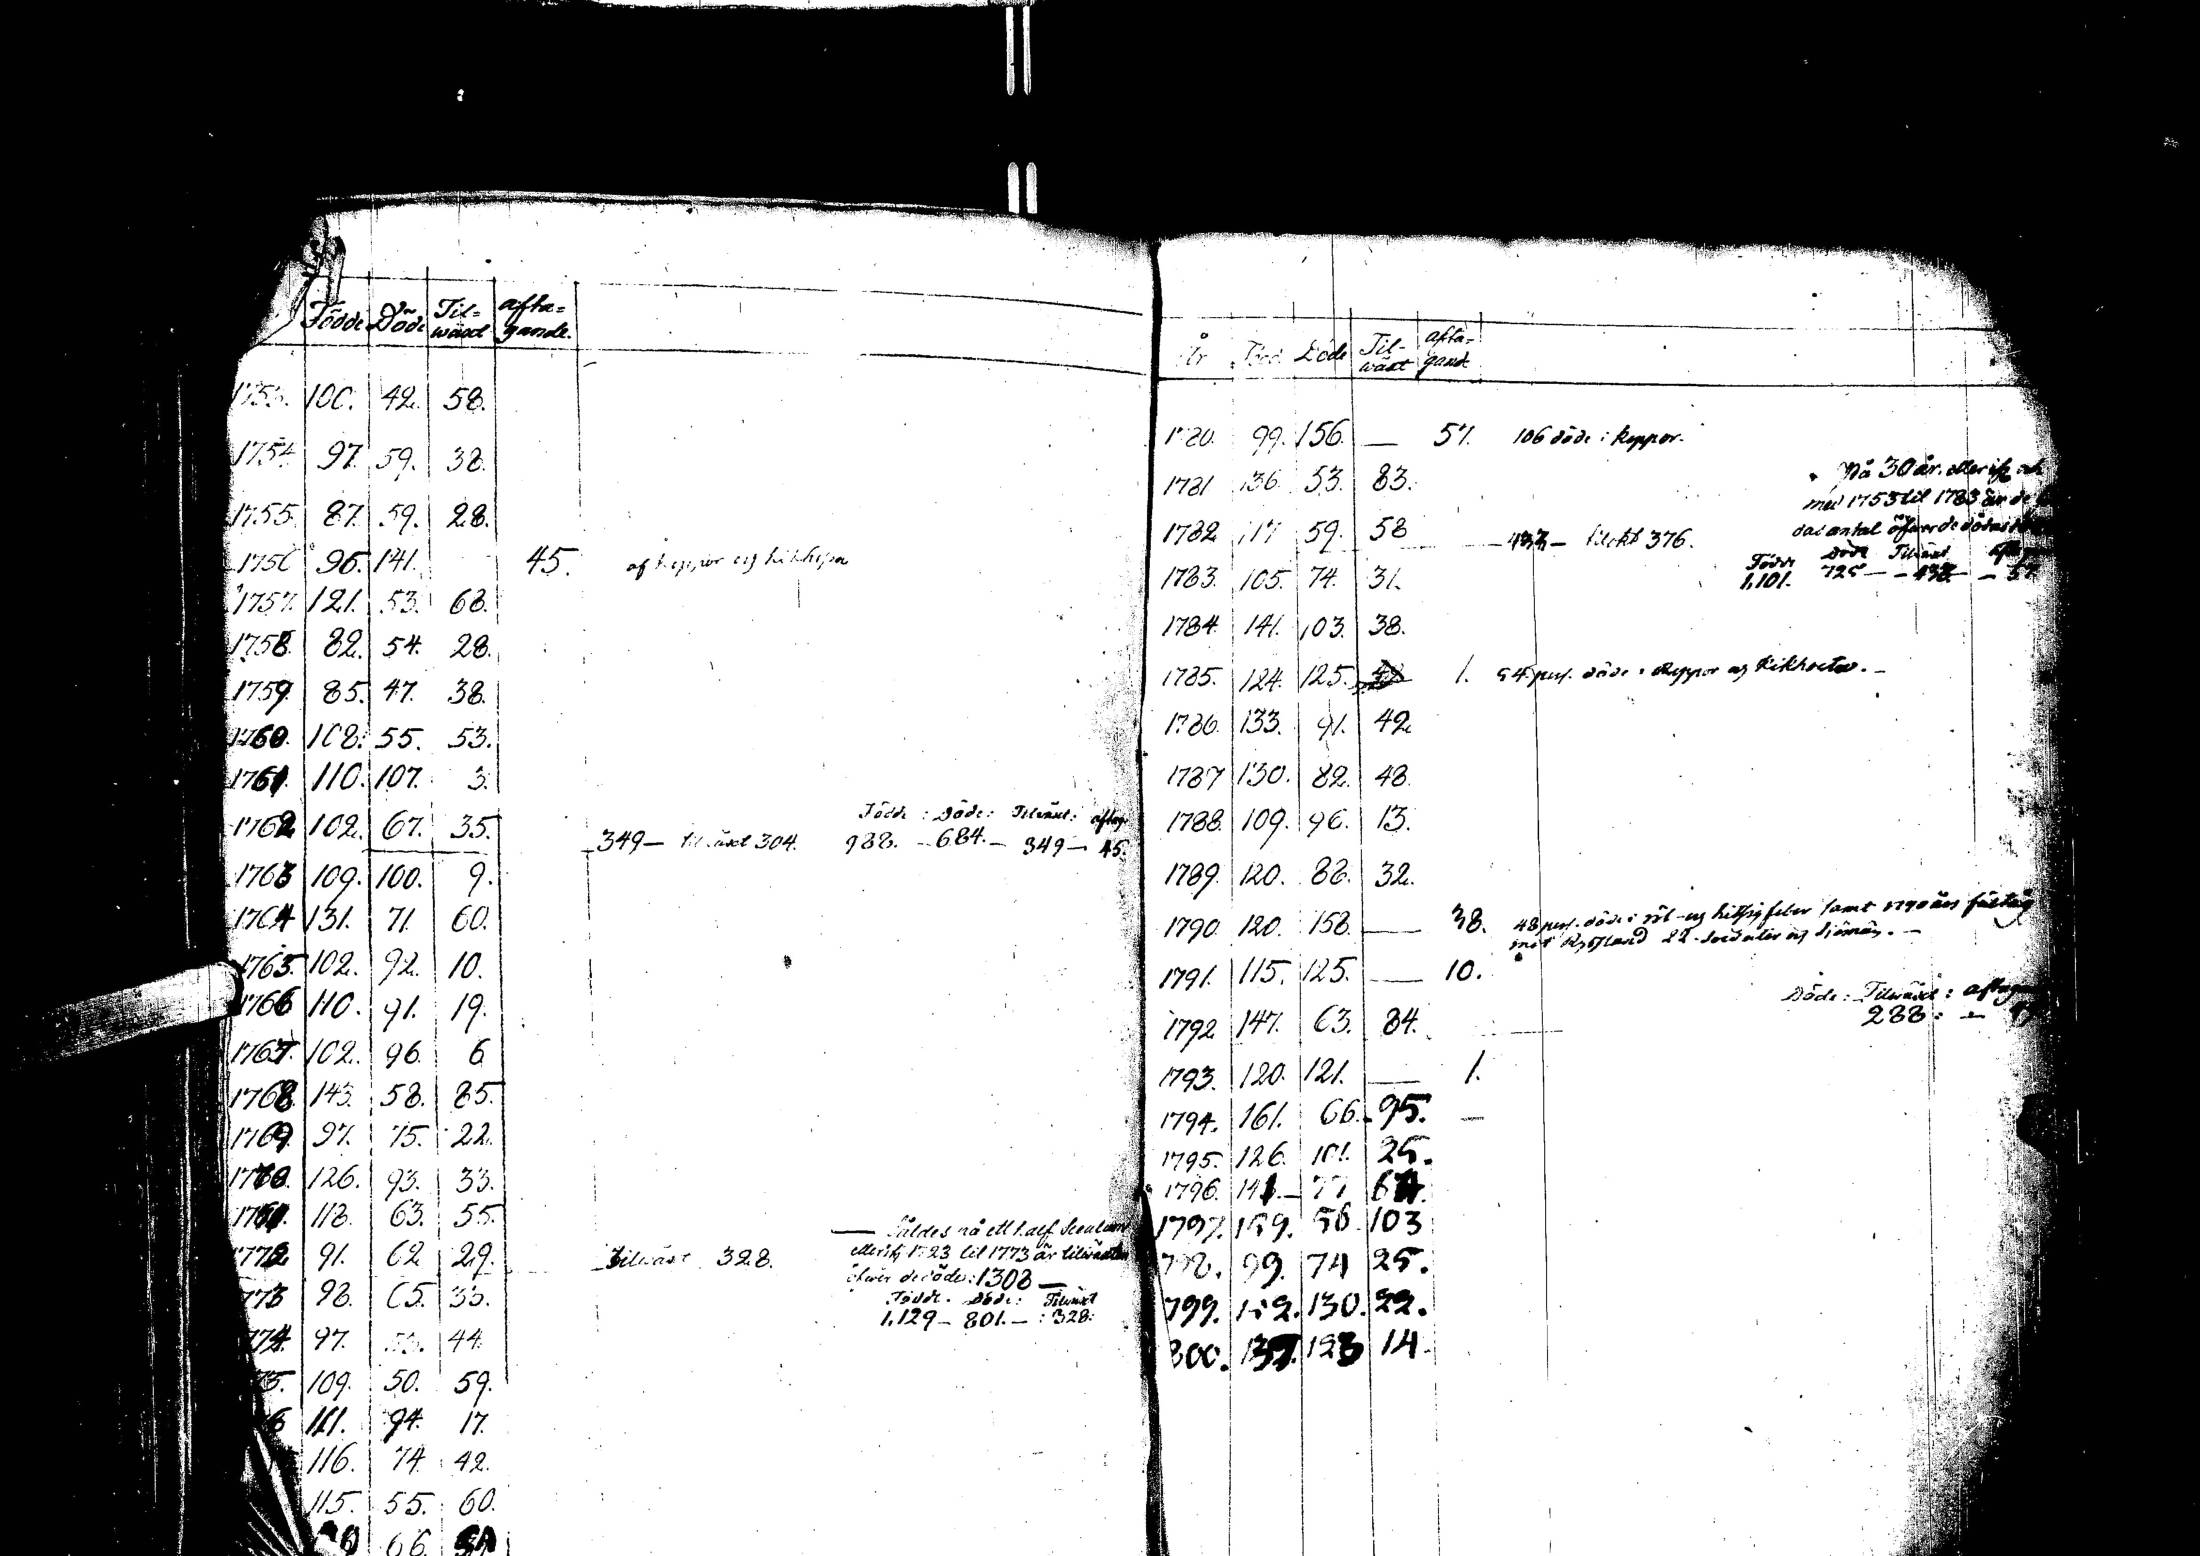 Födde Döde Til= afta=
wäxt gande.
1753. 100. 42. 58.
1754 97. 59. 38.
1755. 87. 59. 28.
1756 96. 141. 45. af koppor og kikhosta
1757. 121. 53. 68.
1758. 82. 54. 28.
1759. 85. 47. 38.
1760. 108. 55. 53.
1761. 110. 107. 3.
Födde : Döde : Tilwäxt : aftag
1762 102. 67. 35. 349 — tilwäxt 304. 988. — 684. — 349 — 45.
1763 109. 100. 9.
1764 131. 71. 60.
1765. 102. 92. 10.
1766 110. 91. 19.
1767. 102. 96. 6
1768. 143. 58. 85.
1769. 97. 75. 22.
1770. 126. 93. 33.
1771. 118. 63. 55.
— Således på ett half Seculum
1772 91. 62 29. Tilwäxt 328. 1723 til 1773 är tilwäxten
öfwer de döde: 1308 —
1773 98. 65. 33. Födde. Döde: Tilwäxt
1,129 — 801. — : 328:
1774. 97. 53. 44.
75. 109. 50. 59.
6 111. 94. 17.
116. 74 42.
115. 55. 60.
66.
År Föd. Döde Til- afta-
wäxt gand
1780. 99. 156. — 57. 106 döde i koppor.
På 30 år
1781 136. 53. 83.
med 1753 til 1783 är de
1782 117 59. 58 — 433 — 376.
antal öfwer de dödas
Födde Döde Tilwäxt
1783. 105. 74. 31. 1,101. 725 — — 433 — — 57
1784. 141. 103. 38.
1785. 124. 125. 1. 54 pers. döde i koppor og kikhosta. —
1786. 133. 91. 42.
1787 130. 82. 48.
1788. 109. 96. 13.
1789. 120. 88. 32.
1790. 120. 158. — 38. 48 pers. döde i röt- og hitsig feber samt 1790 års fältåg
mot Ryssland 22 soldater og
1791. 115. 125. — 10.
Döde : Tilwäxt : aftagan
288 : —
1792 147. 63. 84.
1793. 120. 121. — 1.
1794. 161. 66. 95. —
1795. 126. 101. 25.
1796. 141. — 77 64.
1797. 159. 56 103
798. 99. 74 25.
799. 152. 130. 22.
800. 137. 123 14.